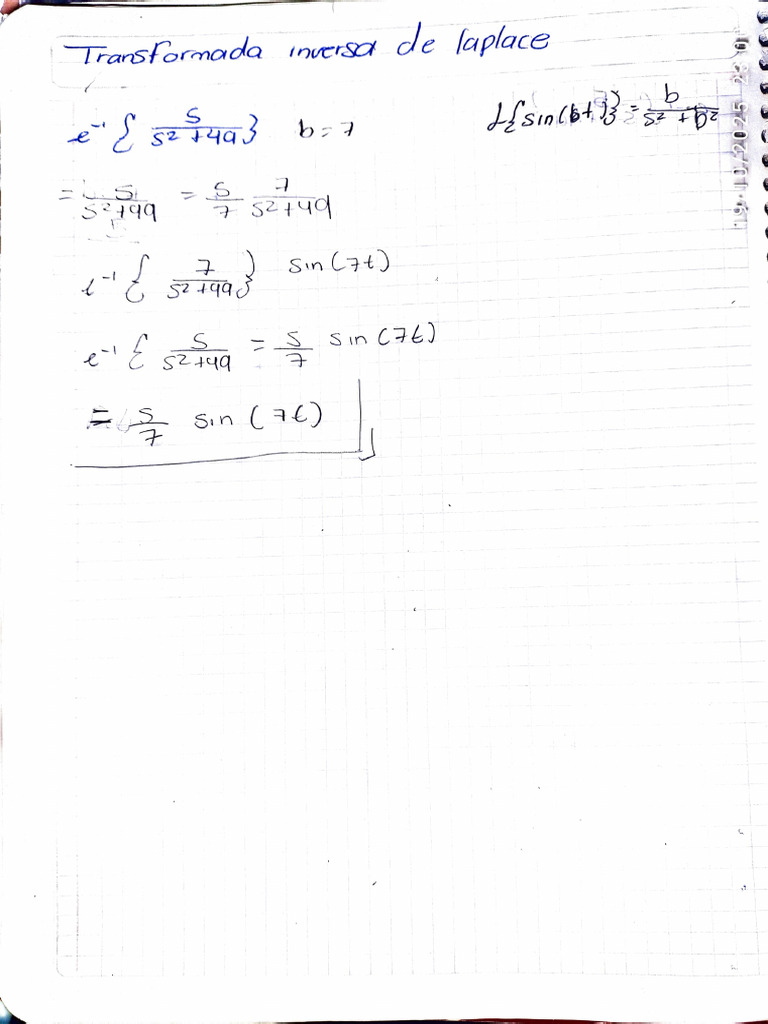 Transformada inversa de laplace
ℒ⁻¹ { 5/(s²+49) } b = 7 ℒ{sin(bt)} = b/(s² + b²)
= 5/(s²+49) = 5/7 7/(s²+49)
ℒ⁻¹ { 7/(s²+49) } sin(7t)
ℒ⁻¹ { 5/(s²+49) = 5/7 sin(7t)
= 5/7 sin(7t)
19/10/2025